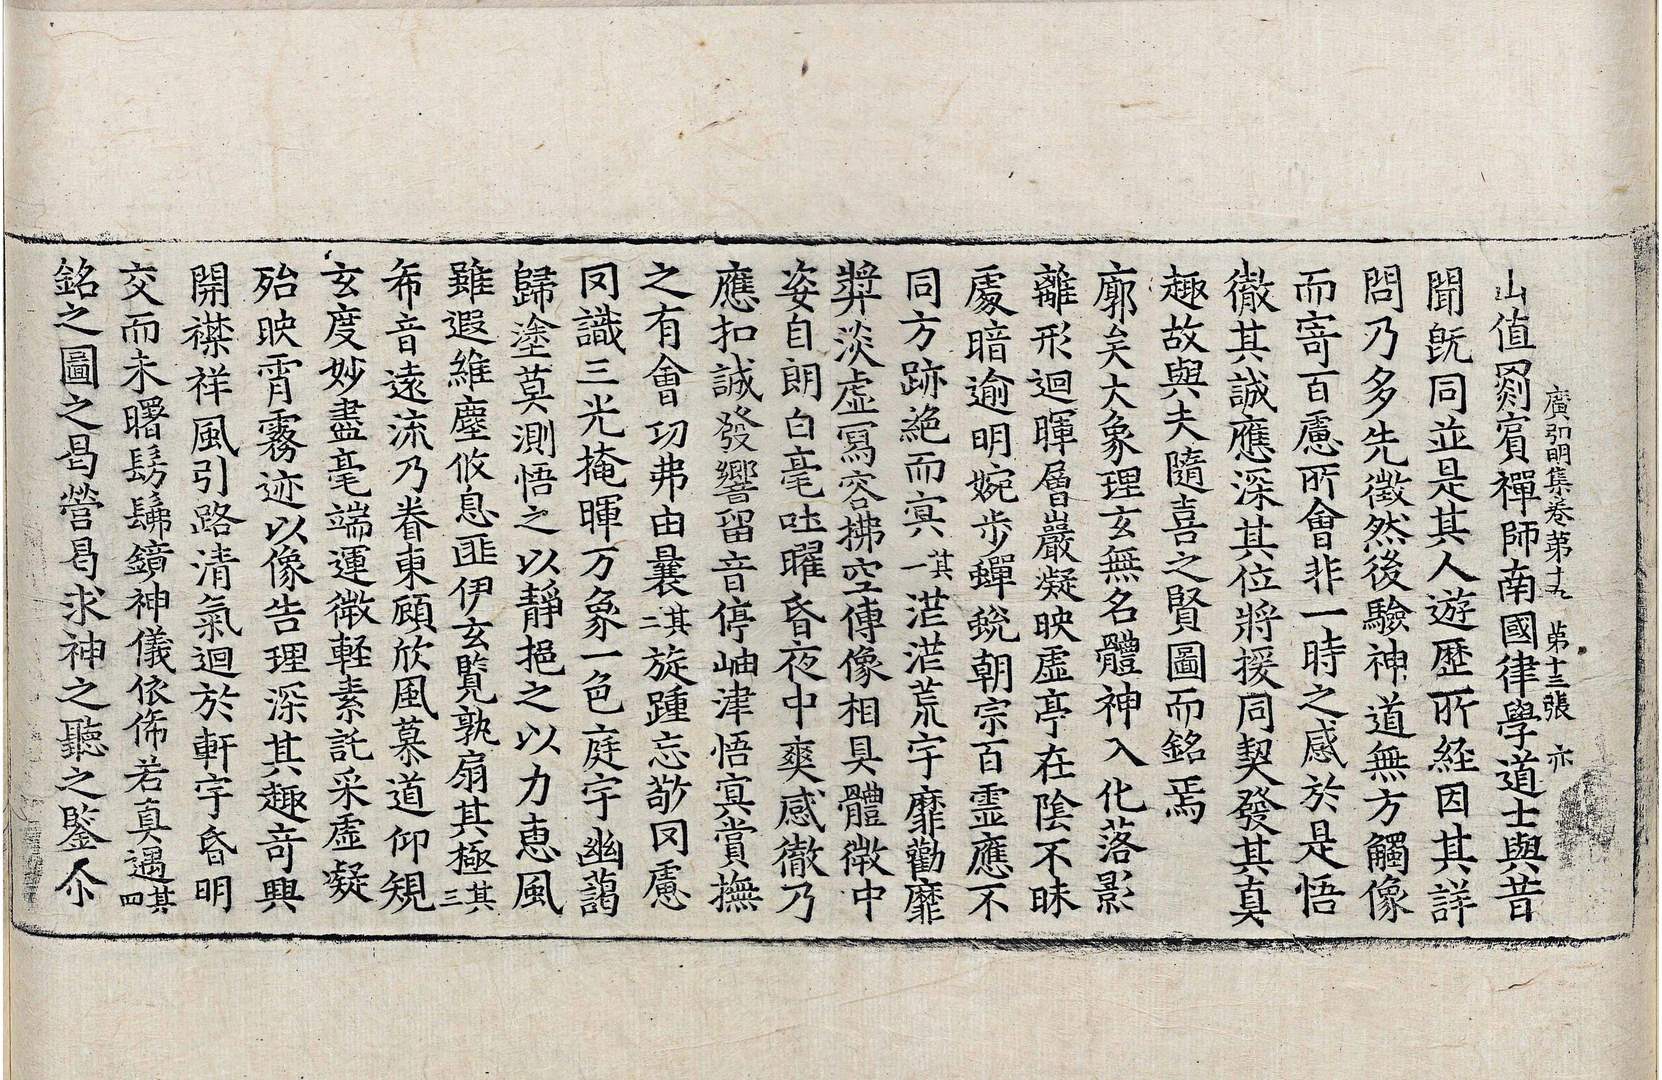 廣弘明集卷第十九　第十三張　亦
山值罽賓禪師南國律學道士與昔
聞旣同並是其人遊歷所経因其詳
問乃多先徵然後驗神道無方觸像
而寄百慮所會非一時之感於是悟
徹其誠應深其位將援同契發其真
趣故與夫隨喜之賢圖而銘焉
廓矣大象理玄無名體神入化落影
離形迴暉層巖凝映虛亭在陰不昧
處暗逾明婉步蟬蛻朝宗百靈應不
同方跡絶而冥其一茫茫荒宇靡勸靡
奬淡虛寫容拂空傳像相具體微中
姿自朗白毫吐曜昏夜中爽感徹乃
應扣誠發響留音停岫津悟冥賞撫
之有會功弗由曩其二旋踵忘敬罔慮
罔識三光掩暉万象一色庭宇幽藹
歸塗莫測悟之以靜挹之以力恵風
雖遐維塵攸息匪伊玄覽孰扇其極其三
希音遠流乃眷東顧欣風慕道仰規
玄度妙盡毫端運微軽素託采虛凝
殆映霄霧迹以像告理深其趣奇興
開襟祥風引路清氣迴於軒宇昏明
交而未曙髣髴鏡神儀依俙若真遇其四
銘之圖之曷營曷求神之聽之鑒尒